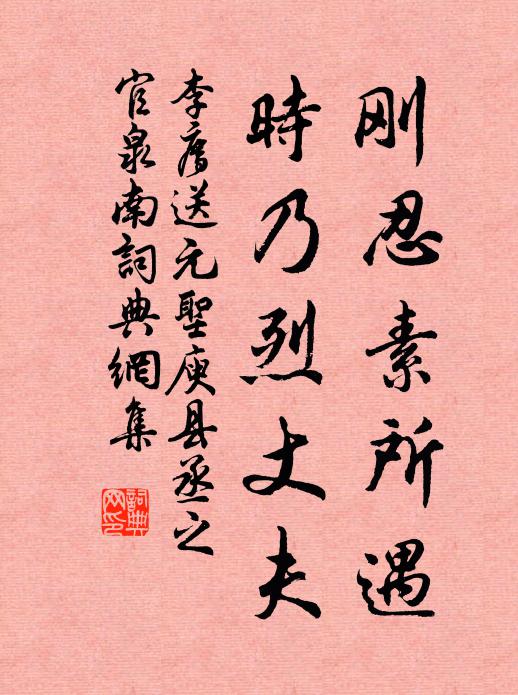 刚忍素所遇
時乃烈丈夫
李廌送元聖庾县丞之
官泉南詞典網集
詞典
网印